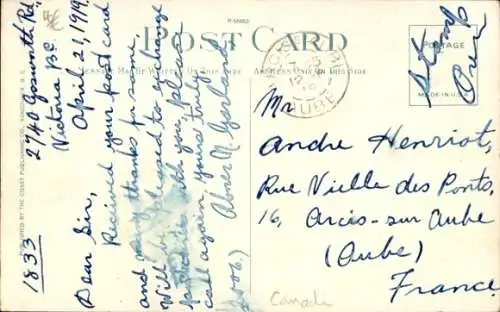 R-51663
POST CARD
ADDRESS ONLY ON THIS SIDE
POSTAGE
MADE IN U.S.A.
Stamp
Over
AUBE
2740 Gosworth Rd,
Victoria B.C.
April 21, 1919
Dear Sir,
Received your post card
and many thanks for same,
Will be pleased to exchange
with you, please
call again, yours truly
Abner N. Garland
1833
Mr
Andre Henriot,
Rue Vielle des Ponts,
16, Arcis-sur Aube
(Aube)
France
Canada
PUBLISHED BY THE COAST PUBLISHING CO. VANCOUVER, B.C.